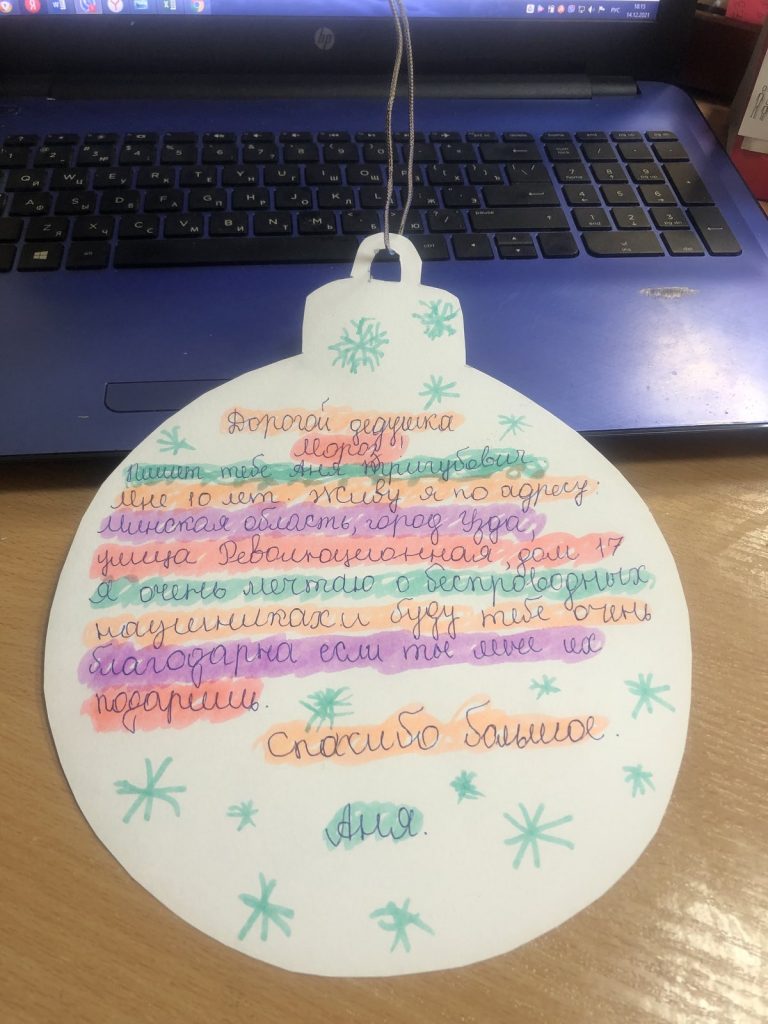 18:15
РУС
14.12.2021
hp
Дорогой дедушка
Мороз!
Пишет тебе Аня Тригубович
Мне 10 лет. Живу я по адресу:
Минская область, город Узда,
улица Революционная, дом 17
Я очень мечтаю о беспроводных
наушниках и буду тебе очень
благодарна если ты мне их
подаришь.
Спасибо большое.
Аня.